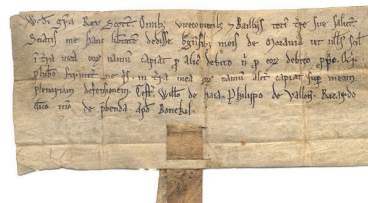 W. di gra Rex Scott. Omib; vicecomitib; 7 Baillis toti tre sue salute.
Sciatis me hanc libtate dedisse hminib; meis de Moravia ut nllus scil
i tra mea eor namu capiat p alic debito n p eor debito ppo.
phibeo firmit ne qs in tra mea eor namu alit capiat sup meam
plenariam defensionem. Test. Willo de Haia. Philippo de Valloñ. Ricardo
clico mo de pbenda. apd Bonckel.